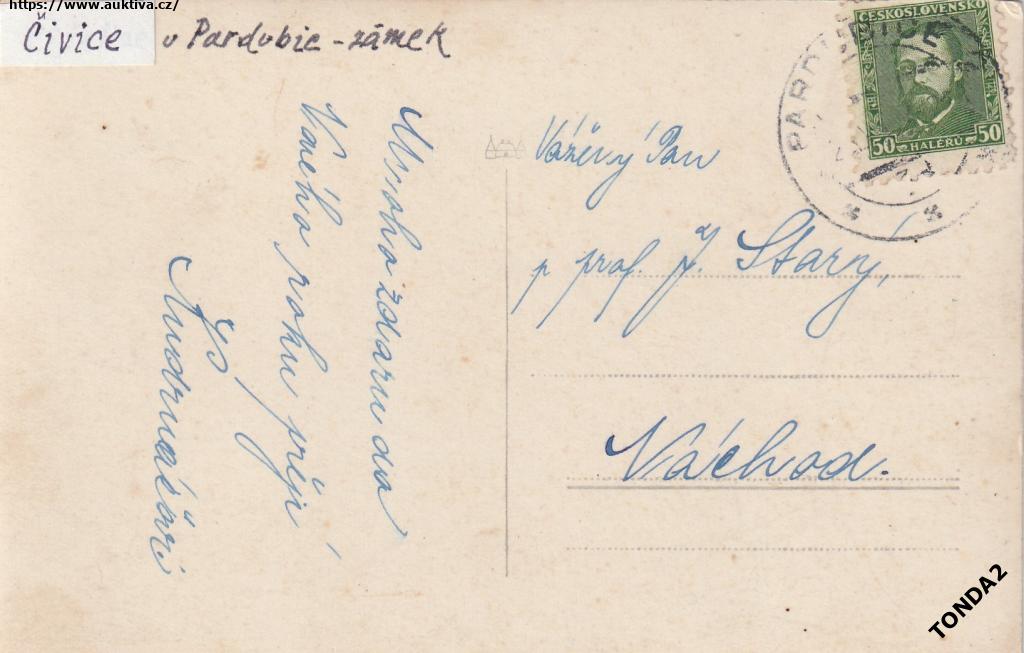 https://www.auktiva.cz/
Čivice u Pardubic - zámek
Mnoho zdaru do
Nového roku přejí
Vážený Pan
p prof. J. Starý,
Náchod.
ČESKOSLOVENSKO
50 HALÉŘŮ 50
PARDUBICE
TONDA2